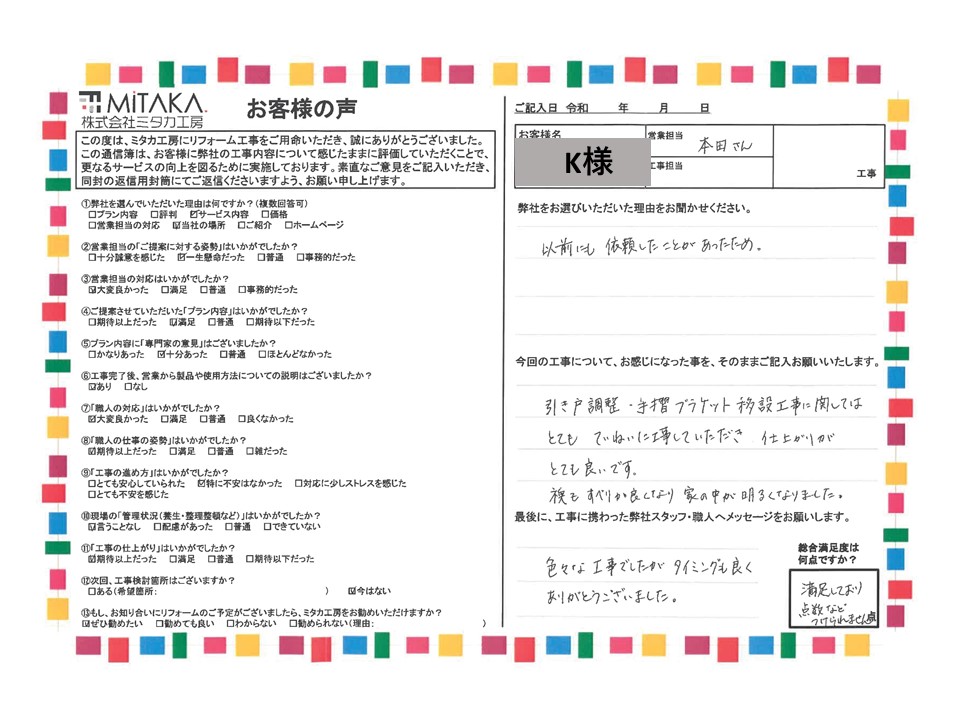 MiTAKA.
株式会社ミタカ工房
お客様の声
この度は、ミタカ工房にリフォーム工事をご用命いただき、誠にありがとうございました。
この通信簿は、お客様に弊社の工事内容について感じたままに評価していただくことで、
更なるサービスの向上を図るために実施しております。素直なご意見をご記入いただき、
同封の返信用封筒にてご返信くださいますよう、お願い申し上げます。
①弊社を選んでいただいた理由は何ですか?(複数回答可)
□プラン内容 □評判 ☑サービス内容 □価格
□営業担当の対応 ☑当社の場所 □ご紹介 □ホームページ
②営業担当の「ご提案に対する姿勢」はいかがでしたか?
□十分誠意を感じた ☑一生懸命だった □普通 □事務的だった
③営業担当の対応はいかがでしたか?
☑大変良かった □満足 □普通 □事務的だった
④ご提案させていただいた「プラン内容」はいかがでしたか?
□期待以上だった ☑満足 □普通 □期待以下だった
⑤プラン内容に「専門家の意見」はございましたか?
□かなりあった ☑十分あった □普通 □ほとんどなかった
⑥工事完了後、営業から製品や使用方法についての説明はございましたか?
☑あり □なし
⑦「職人の対応」はいかがでしたか?
☑大変良かった □満足 □普通 □良くなかった
⑧「職人の仕事の姿勢」はいかがでしたか?
☑期待以上だった □満足 □普通 □雑だった
⑨「工事の進め方」はいかがでしたか?
□とても安心していられた ☑特に不安はなかった □対応に少しストレスを感じた
□とても不安を感じた
⑩現場の「管理状況(養生・整理整頓など)」はいかがでしたか?
☑言うことなし □配慮があった □普通 □できていない
⑪「工事の仕上がり」はいかがでしたか?
☑期待以上だった □満足 □普通 □期待以下だった
⑫次回、工事検討箇所はございますか?
□ある(希望箇所: ) ☑今はない
⑬もし、お知り合いにリフォームのご予定がございましたら、ミタカ工房をお勧めいただけますか?
☑ぜひ勧めたい □勧めても良い □わからない □勧められない(理由: )
ご記入日 令和 年 月 日
お客様名
K様
営業担当 本田さん
工事担当
工事
弊社をお選びいただいた理由をお聞かせください。
以前にも依頼したことがあったため。
今回の工事について、お感じになった事を、そのままご記入お願いいたします。
引き戸調整・手摺ブラケット移設工事に関しては
とても ていねいに工事していただき 仕上がりが
とても良いです。
襖も すべりが良くなり 家の中が明るくなりました。
最後に、工事に携わった弊社スタッフ・職人へメッセージをお願いします。
色々な工事でしたが タイミングも良く
ありがとうございました。
総合満足度は
何点ですか?
満足しており
点数など
つけられません点